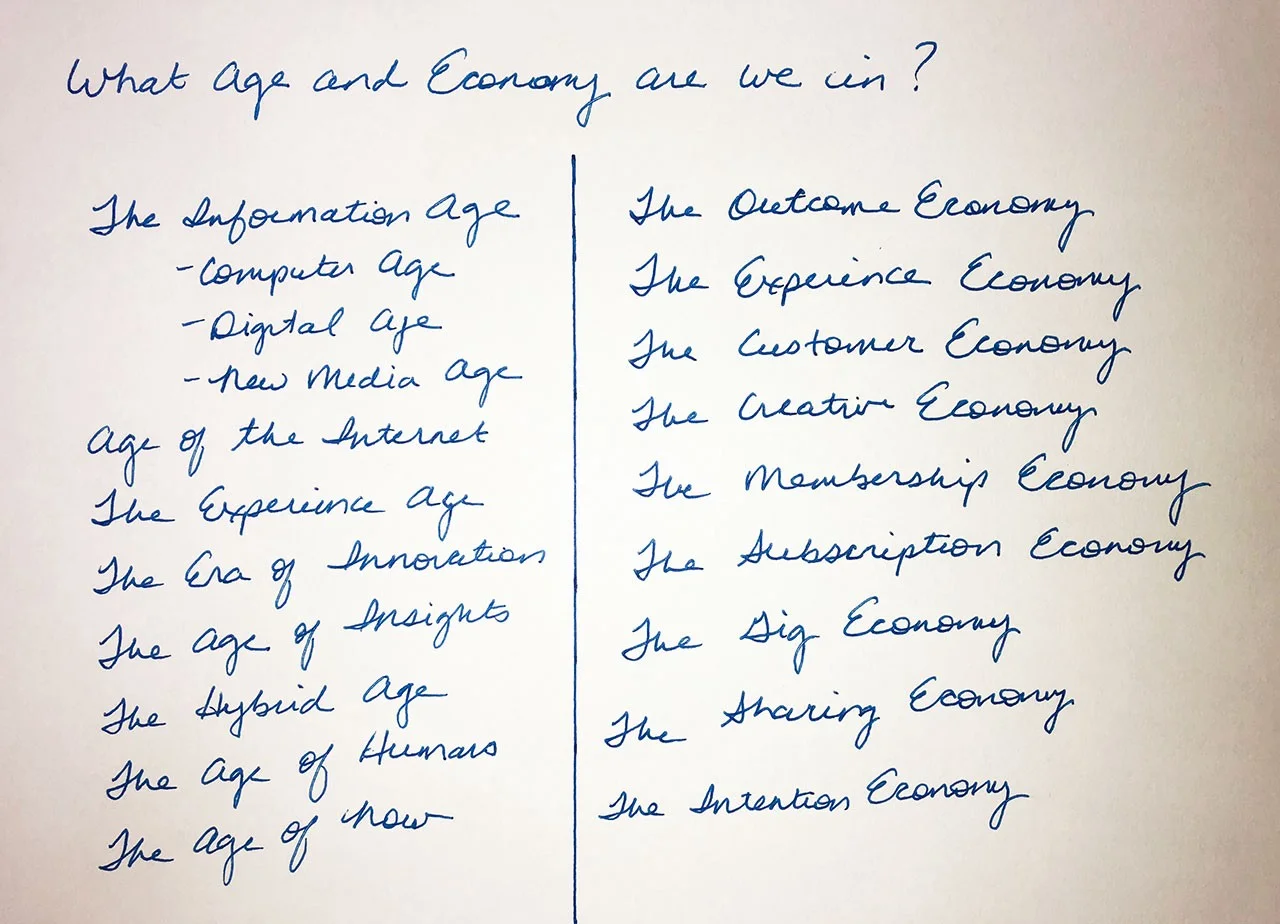 What Age and Economy are we in?
The Information Age
- Computer Age
- Digital Age
- New Media Age
Age of the Internet
The Experience Age
The Era of Innovation
The Age of Insights
The Hybrid Age
The Age of Humans
The Age of Now
The Outcome Economy
The Experience Economy
The Customer Economy
The Creative Economy
The Membership Economy
The Subscription Economy
The Gig Economy
The Sharing Economy
The Intention Economy